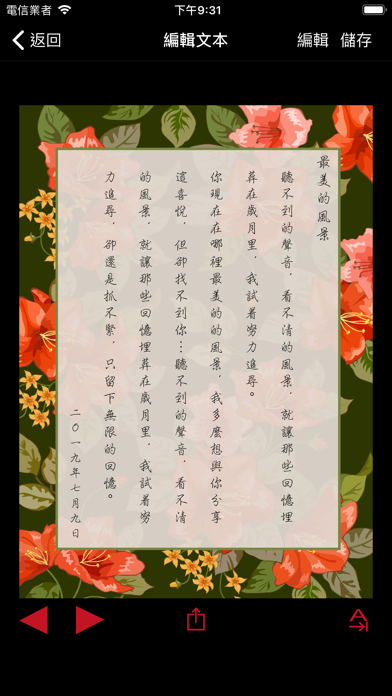 電信業者
下午9:31
返回
編輯文本
編輯
儲存
最美的風景
聽不到的聲音，看不清的風景，就讓那些回憶埋
葬在歲月里，我試着努力追尋。
你現在在哪裡最美的的風景，我多麼想與你分享
這喜悅，但卻找不到你…聽不到的聲音，看不清
的風景，就讓那些回憶埋葬在歲月里，我試着努
力追尋，卻還是抓不緊，只留下無限的回憶。
二０一九年七月九日